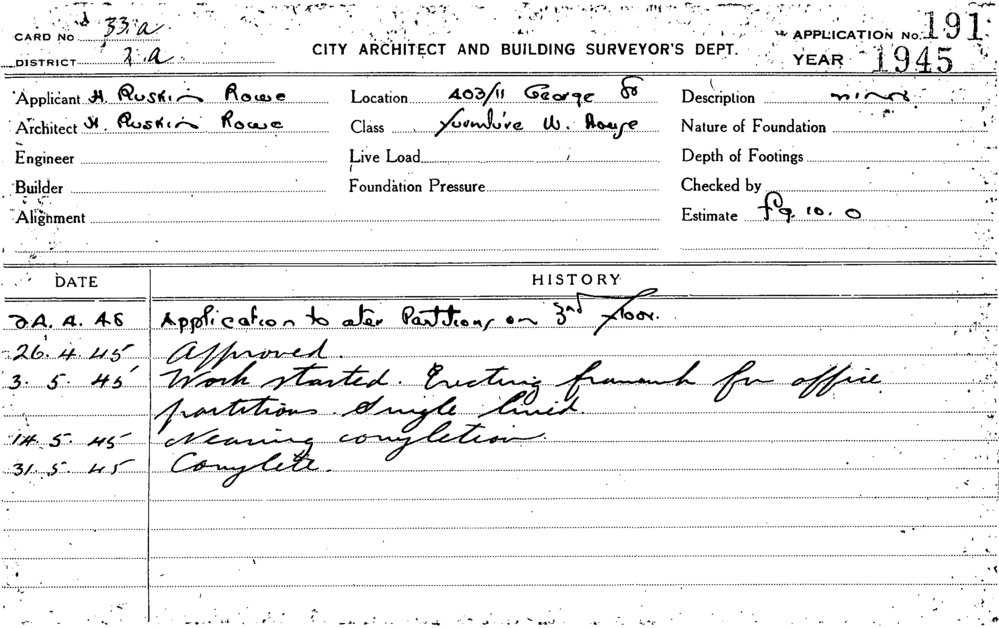 CARD No 33.a
DISTRICT 2.a
CITY ARCHITECT AND BUILDING SURVEYOR'S DEPT.
APPLICATION No. 191
YEAR 1945
Applicant H. Ruskin Rowe
Location 403/11 George St
Description minor
Architect H. Ruskin Rowe
Class Furniture W. House
Nature of Foundation
Engineer
Live Load
Depth of Footings
Builder
Foundation Pressure
Checked by
Alignment
Estimate 10. 0
DATE HISTORY
4. 45 Application to alter Partitions on 3rd floor.
26. 4. 45 Approved.
3. 5. 45 Work started. Erecting framework for office
partitions. Single lined.
14. 5. 45 Nearing completion.
31. 5. 45 Complete.